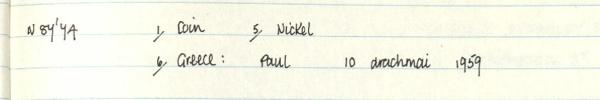 N 84'4A 1, Coin 5, Nickel
6, Greece: Paul 10 drachmai 1959